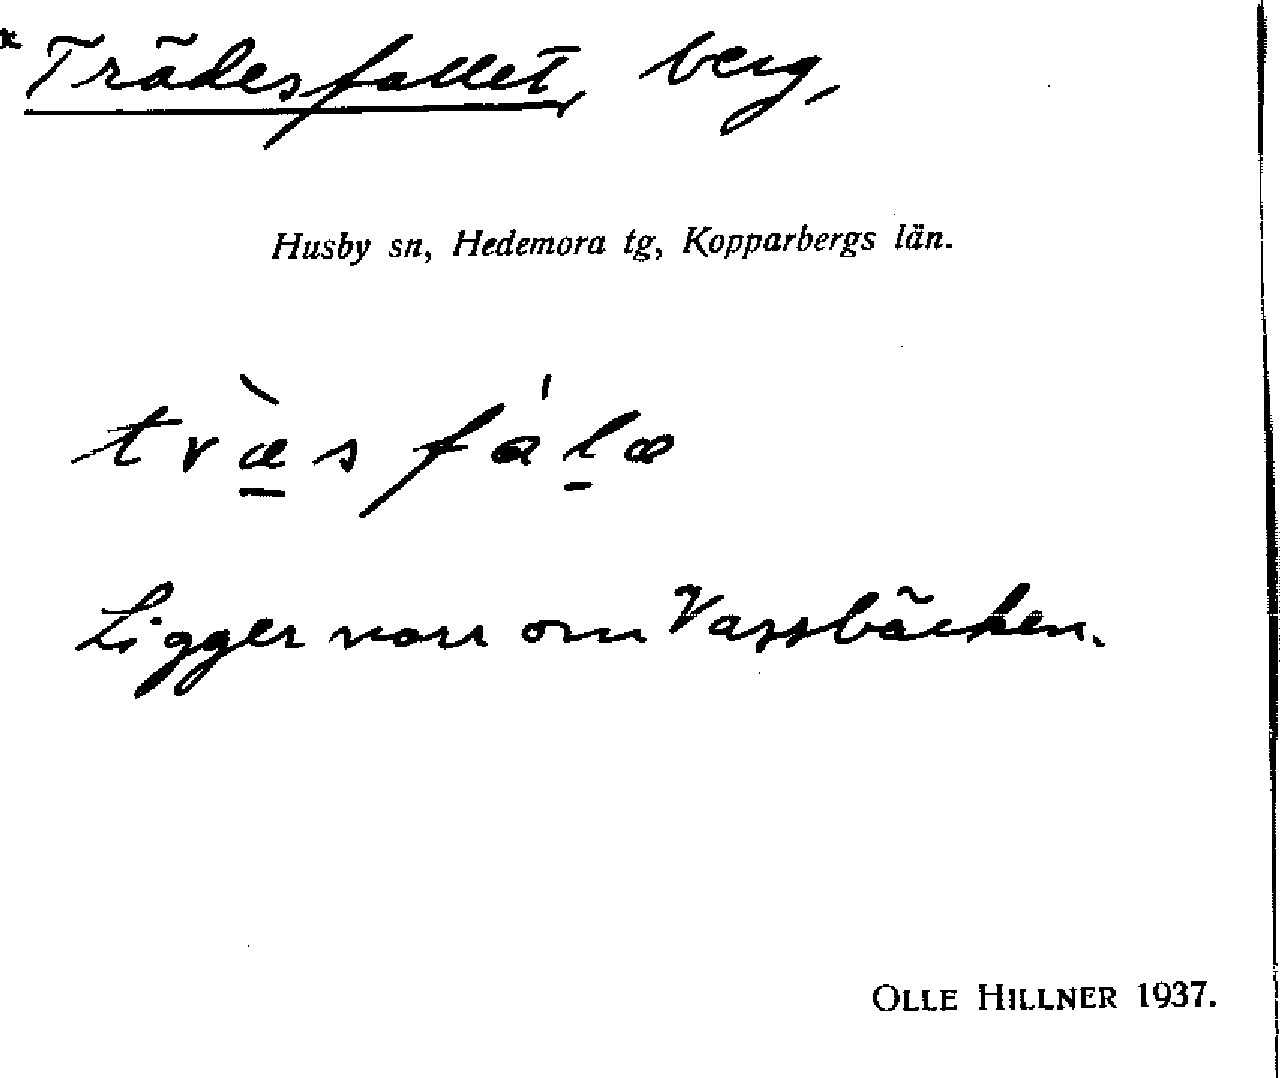 * Trädesfallet, berg,
Husby sn, Hedemora tg, Kopparbergs län.
træ̀sfálæ
Ligger norr om Vassbäcken.
OLLE HILLNER 1937.